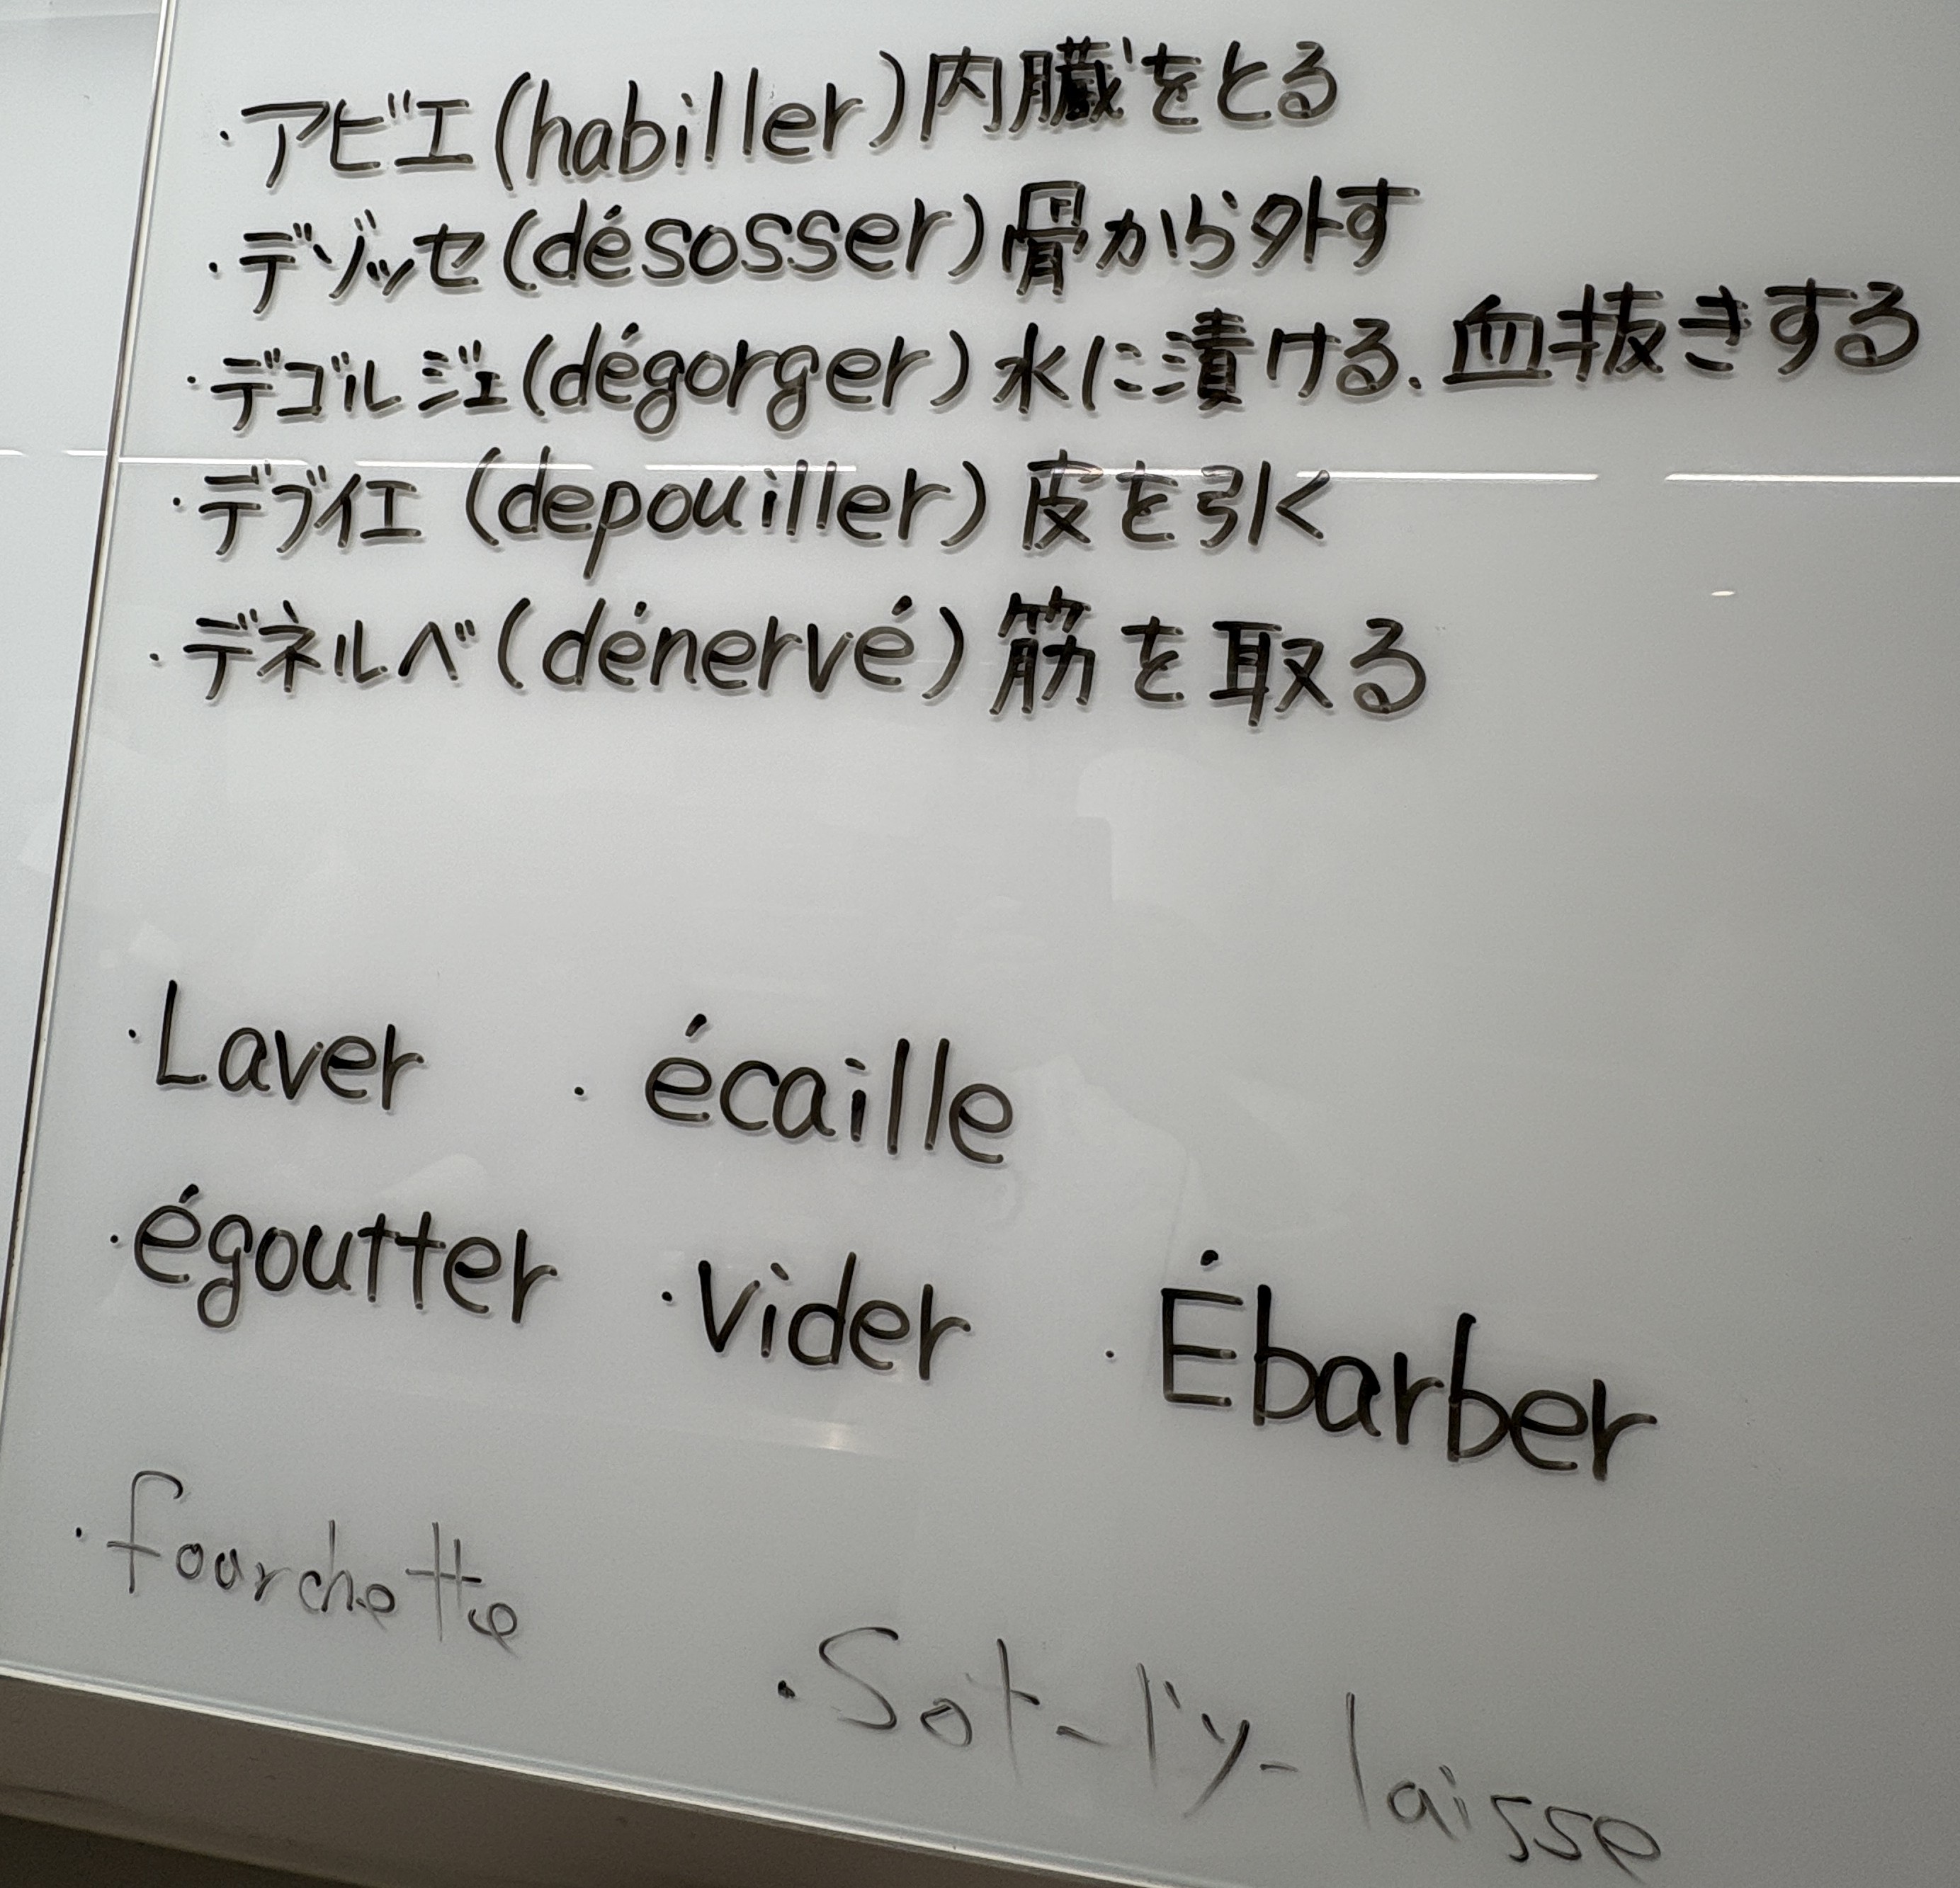 ・アビエ(habiller)内臓をとる
・デゾッセ(désosser)骨から外す
・デゴルジェ(dégorger)水に漬ける.血抜きする
・デブイエ(depouiller)皮を引く
・デネルベ(dénervé)筋を取る
・Laver ・écaille
・égoutter ・vider ・Ébarber
・fourchette
・Sot-l'y-laisse